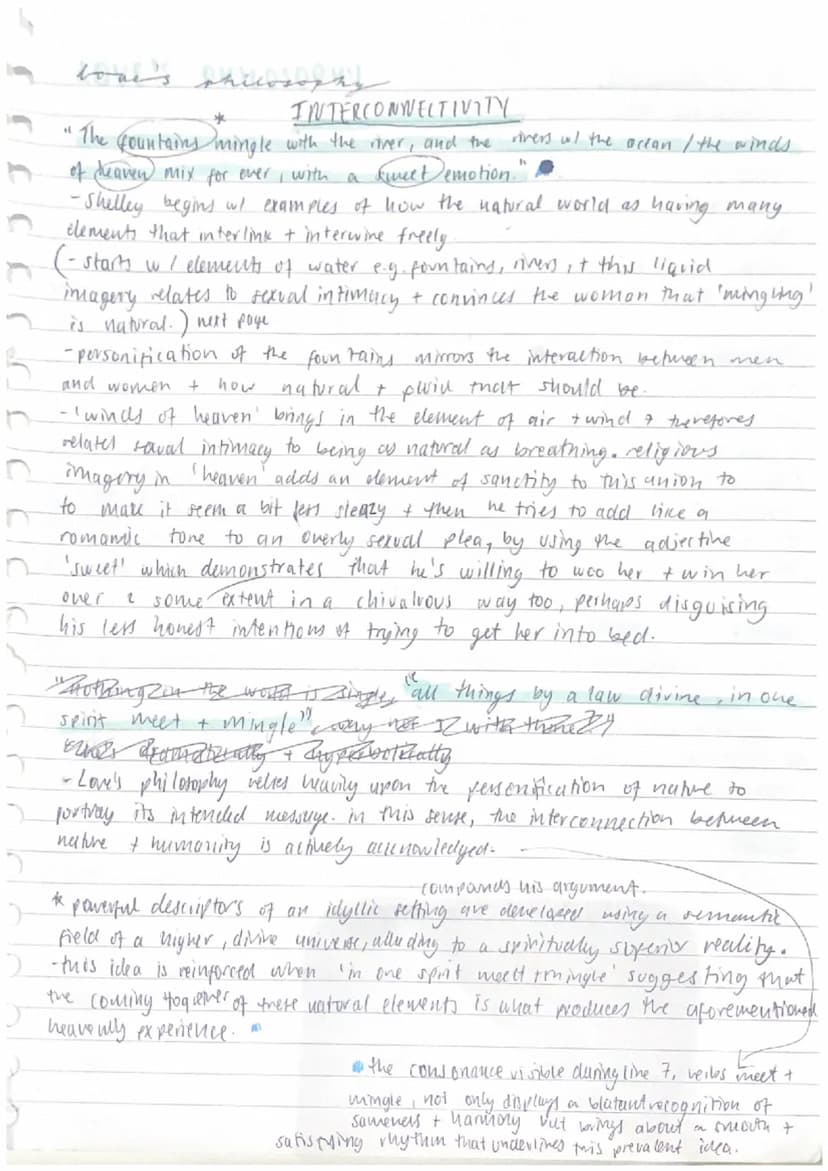 Love's philosophy
INTERCONNECTIVITY
*
"The fountains mingle with the river, and the rivers w/ the ocean / the winds
of heaven mix for ever, with a sweet emotion."
- Shelley begins w/ examples of how the natural world as having many
elements that interlink + interwine freely
(- starts w/ elements of water e.g. fountains, rivers, + this liquid
imagery relates to sexual intimacy + convinces the woman that 'mingling'
is natural.) next page
- personification of the fountains mirrors the interaction between men
and women + how natural + fluid that should be.
- 'winds of heaven' brings in the element of air + wind + therefores
relates sexual intimacy to being as natural as breathing. religious
imagery in 'heaven' adds an element of sanctity to this union to
to make it seem a bit less sleazy + then he tries to add like a
romantic tone to an overly sexual plea, by using the adjective
'sweet' which demonstrates that he's willing to woo her + win her
over 2 some extent in a chivalrous way too, perhaps disguising
his less honest intentions of trying to get her into bed.
"Nothing in the world is single, "all things by a law divine, in one
spirit meet + mingle" why not I with thine?"
dramatically + hyperbolically
- Love's philosophy relies heavily upon the personification of nature to
portray its intended message. in this sense, the interconnection between
nature + humanity is actively acknowledged.
compounds his argument.
* powerful descriptors of an idyllic setting are developed using a semantic
field of a higher, divine universe, alluding to a spiritually superior reality.
- this idea is reinforced when 'in one spirit meet + mingle' suggesting that
the coming together of these natural elements is what produces the aforementioned
heavenly experience.
the consonance visible during line 7, verbs meet +
mingle, not only displays a blatant recognition of
sameness + harmony but brings about a smooth +
satisfying rhythm that underlines this prevalent idea.